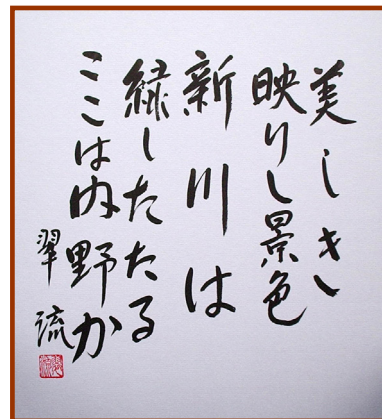 美しき
映りし景色
新川は
緑したたる
ここは内野か
翠流